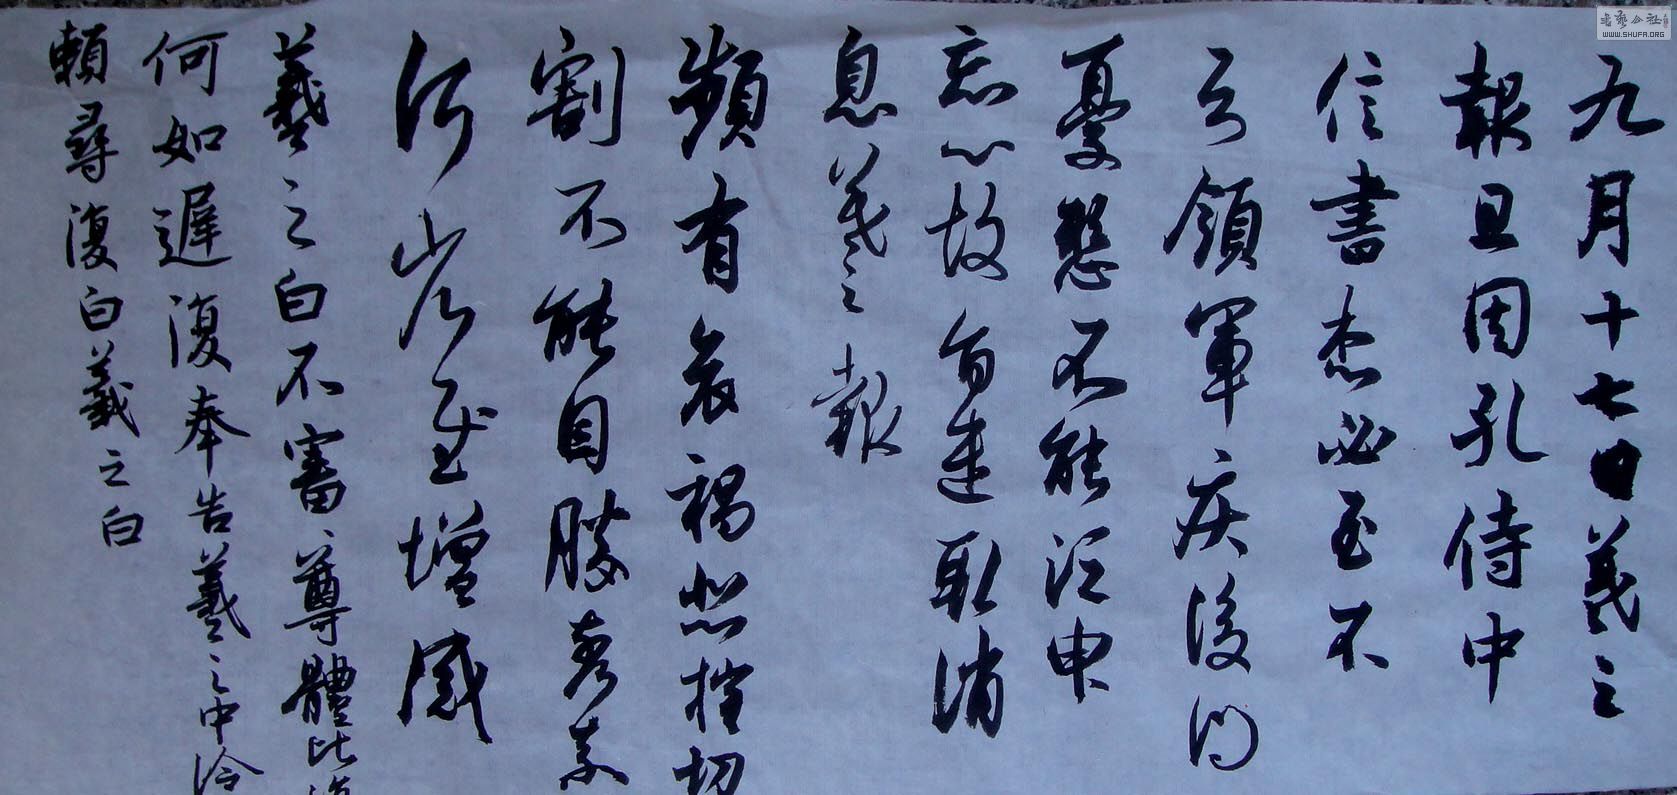 九月十七日羲之
報且因孔侍中
信書想必至不
知領軍疾後問
憂懸不能
忘心故旨遣取消
息羲之報
頻有哀禍悲摧切
割不能自勝奈
何省慰增感
羲之白不審尊體比復
何如遲復奉告羲之中冷
賴尋復白羲之白
書法公社
WWW.SHUFA.ORG